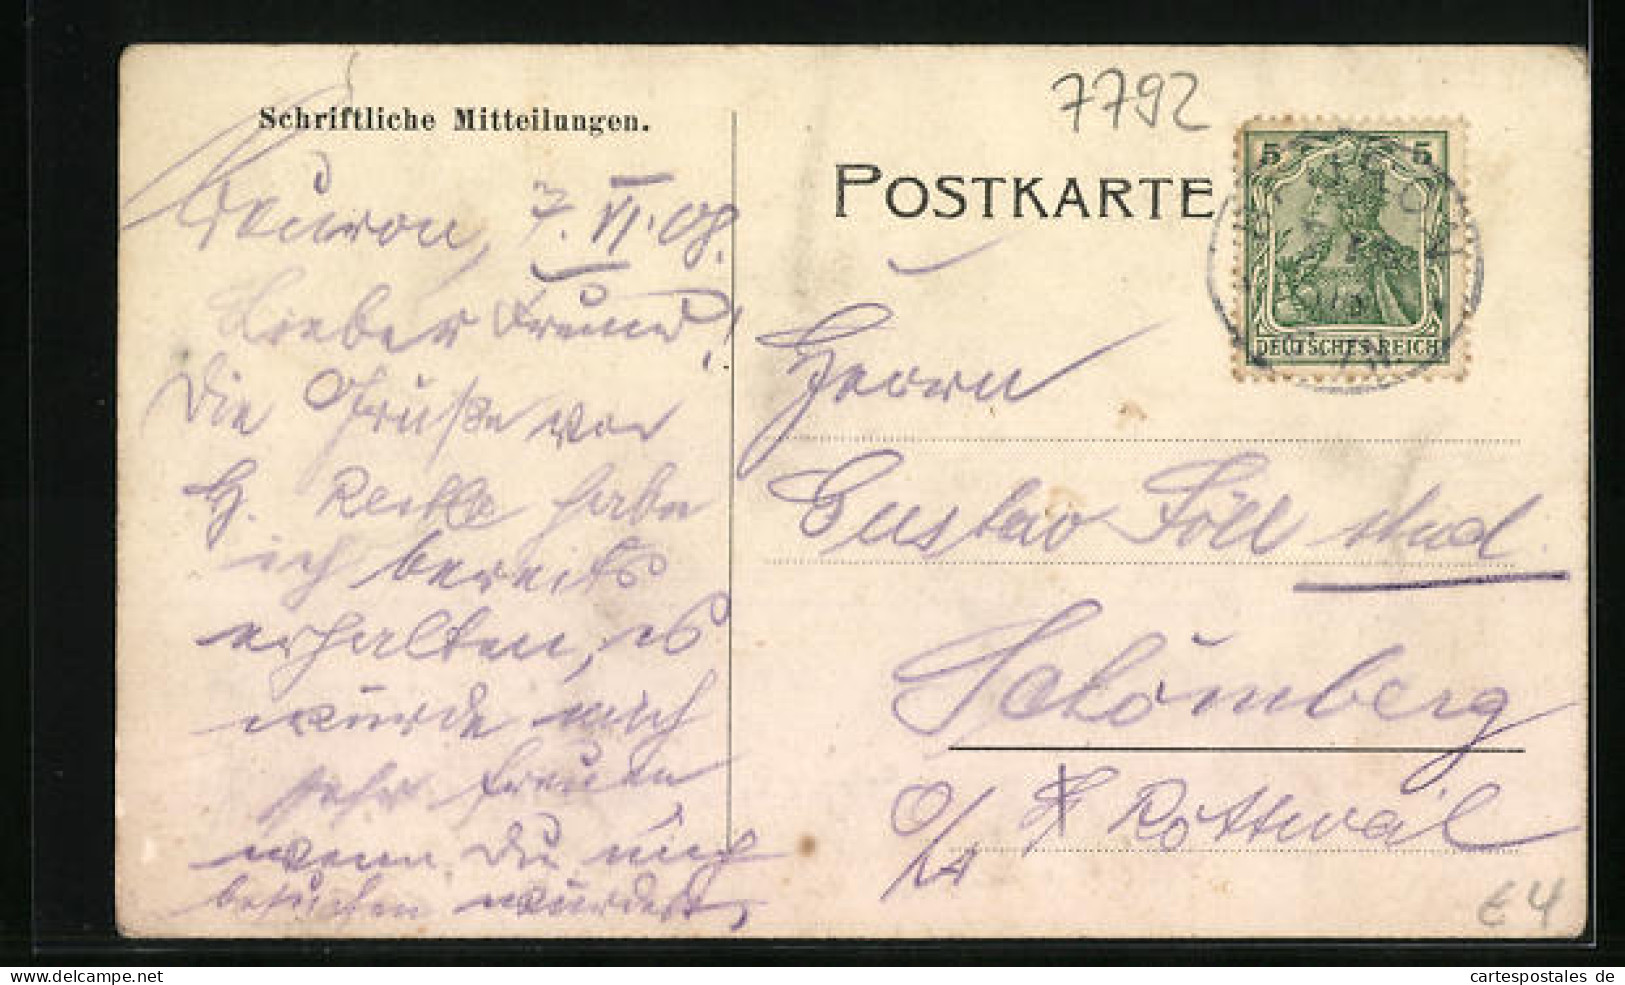 7792
Schriftliche Mitteilungen.
POSTKARTE
5 5
DEUTSCHES REICH
Beuron, 7. VI. 08.
Lieber Freund!
Die Grüße von
H. habe
ich bereits
erhalten, es
würde mich
sehr freuen
wenn Du mich
besuchen würdest,
Herrn
Gustav Föll stud.
Schömberg
O/A Rottweil
€4
cartespostales de